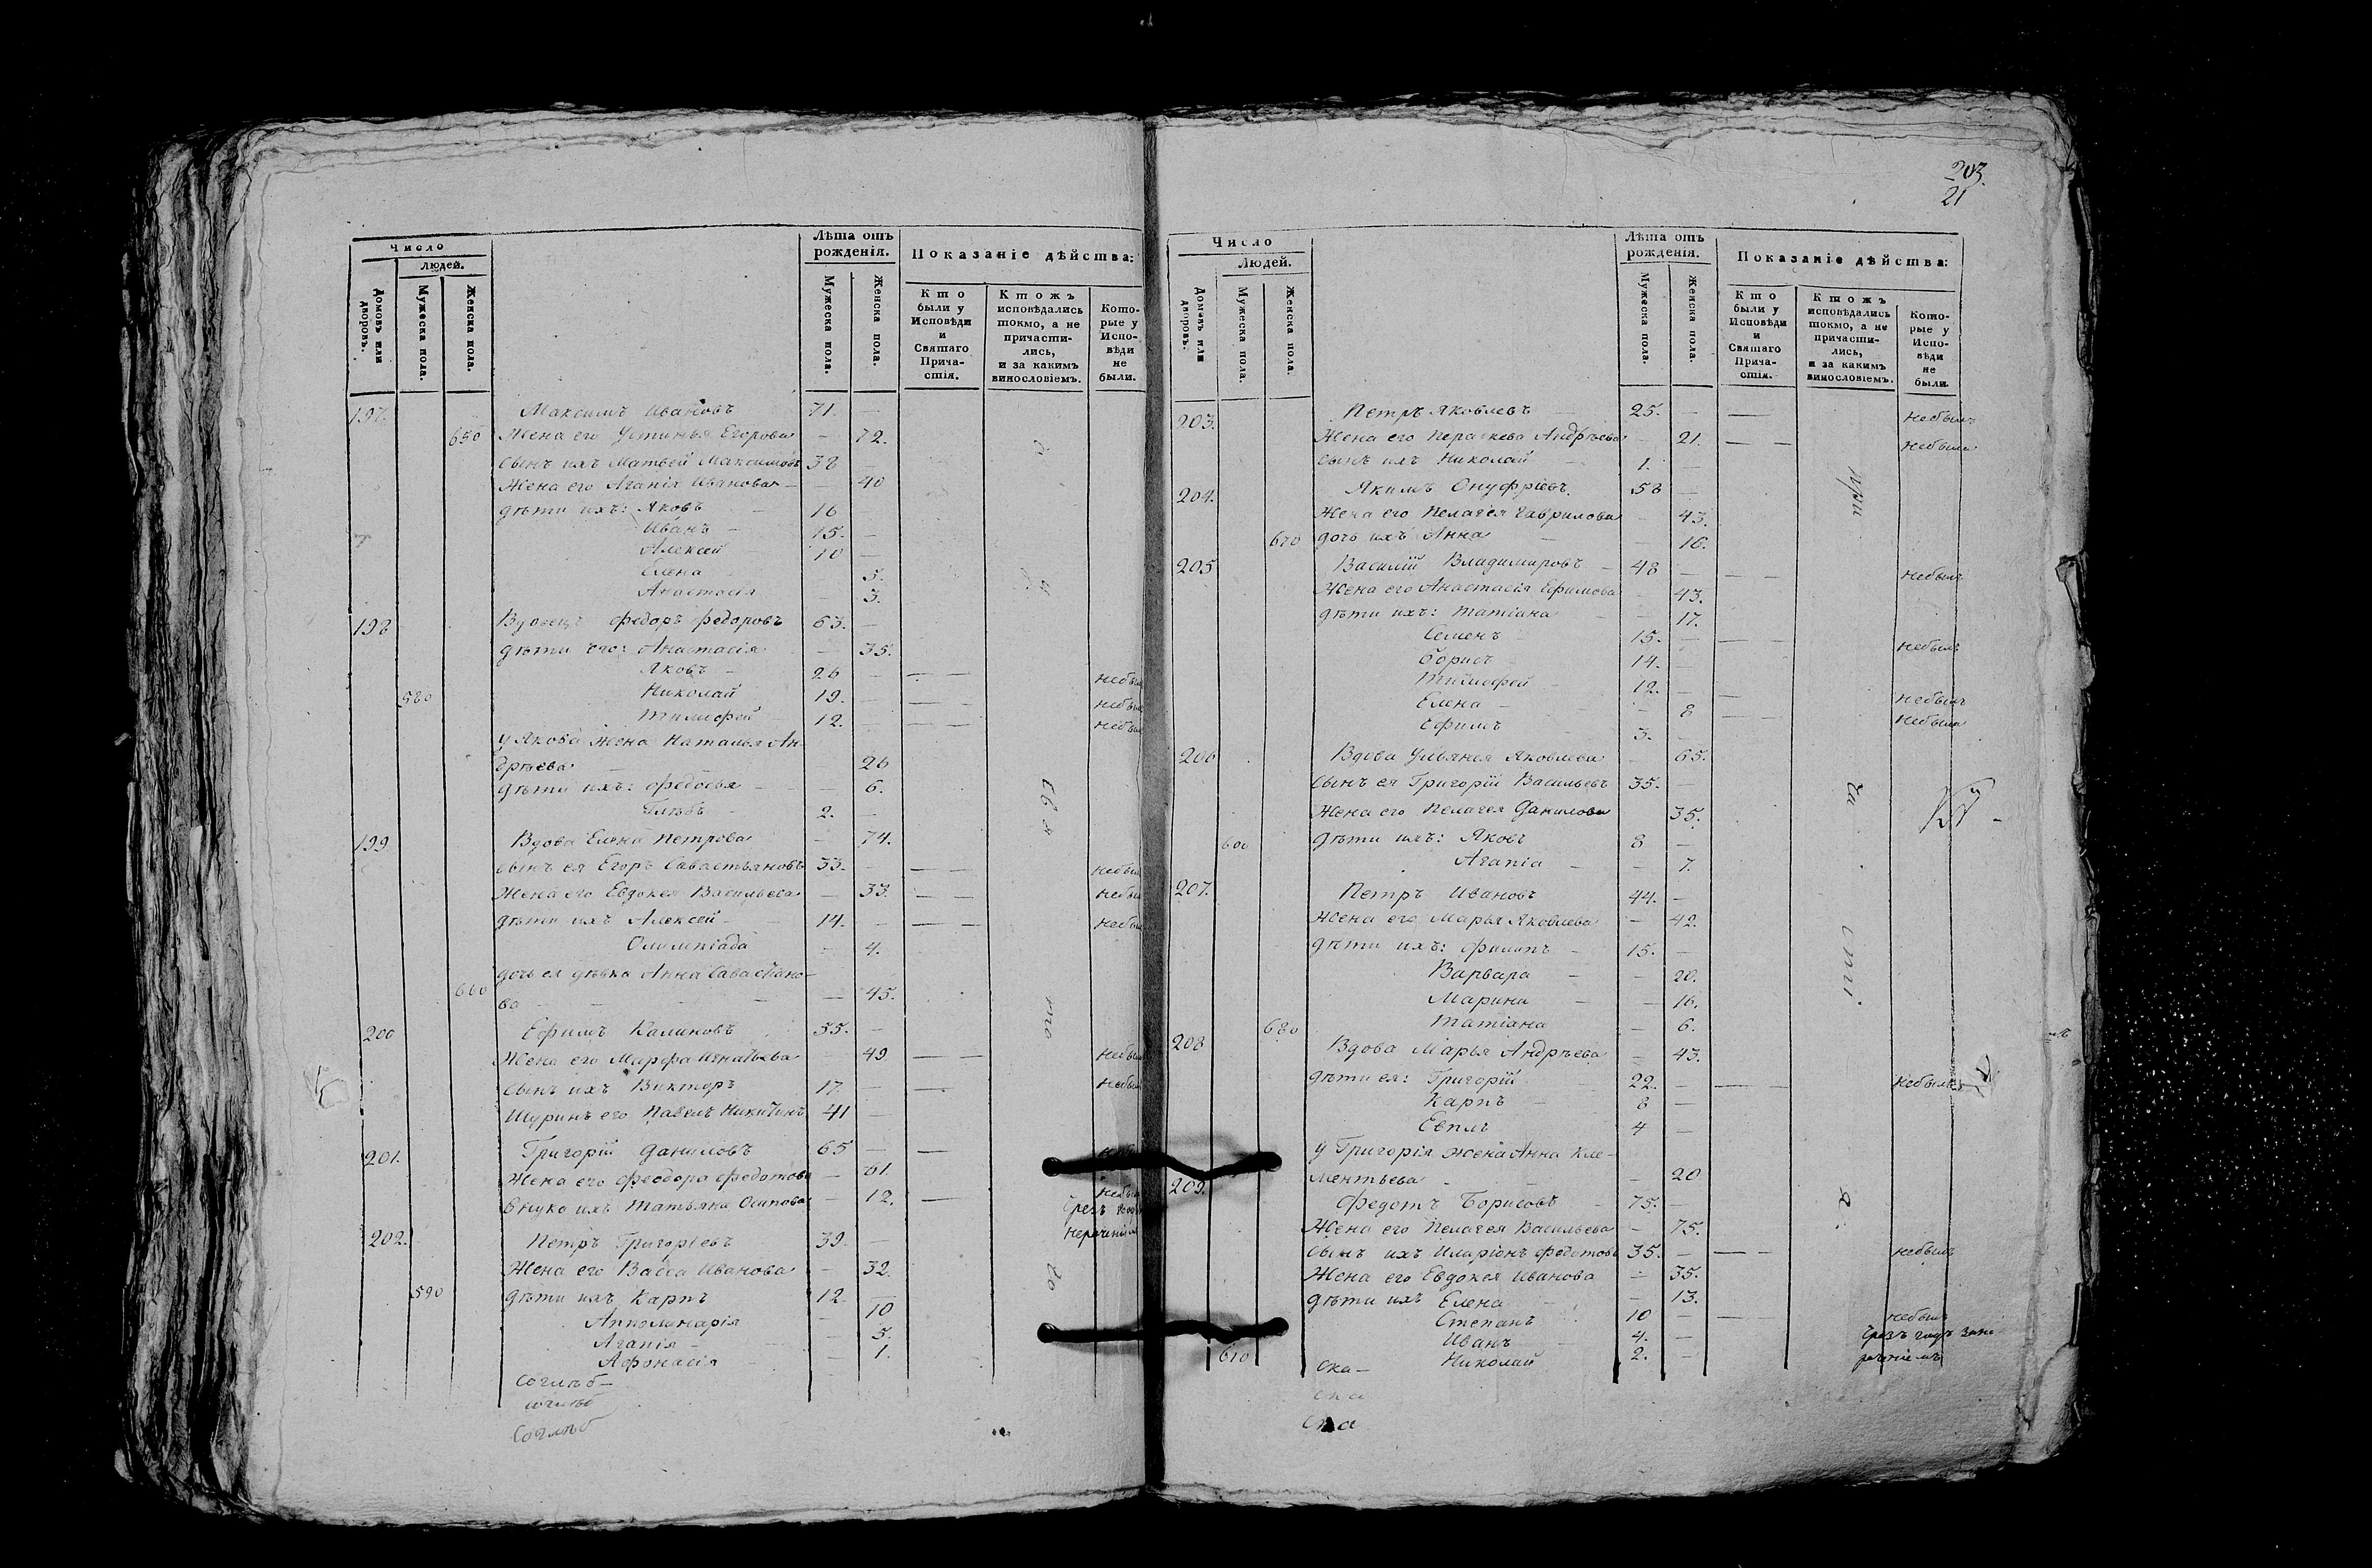 203.
21
Число
людей.
Домовъ или дворовъ.
Мужеска пола.
Женска пола.
Лѣта отъ рожденія.
Мужеска пола.
Женска пола.
Показаніе дѣйства:
Кто были у Исповѣди и Святаго Причастія.
Ктожъ исповѣдались токмо, а не причастились, и за какимъ винословіемъ.
Которые у Исповѣди не были.
197. Максимъ Ивановъ 71. —
650 Жена его Устинья Егорова — 72.
Сынъ ихъ Матвей Максимовъ 38 —
Жена его Агапія Иванова — 40
дѣти ихъ: Яковъ 16
Иванъ 15. —
Алексей 10 —
Елена 5.
Анастасія — 3.
198 Вдовецъ Федоръ Федоровъ 63. —
дѣти его: Анастасія — 35.
Яковъ 26 — небыл
580 Николай 19. — небыл
Тимофей 12. — небыл
у Якова жена Наталья Ан
дрѣева 26
дѣти ихъ: Федосья — 6.
Глѣбъ 2. —
199 Вдова Елена Петрова — 74.
сынъ ея Егоръ Савастьяновъ 33. — небыл
Жена его Евдокея Васильева — 33. небыл
дѣти ихъ Алексей 14. — небыл
Олимпіада — 4.
дочь ея дѣвка Анна Савастьяно-
660 ва — 45.
200 Ефимъ Калиновъ 55. —
Жена его Марфа Игнатьева — 49 небыл
Сынъ ихъ Викторъ 17. — небыл
Шуринъ его Павелъ Никитинъ 41 —
201. Григорій Даниловъ 65 —
Жена его Феодора Федотова — 61.
Внука ихъ Татьяна Осипова — 12. небыл
202. Петръ Григорьевъ 39. —
Жена его Васса Иванова — 32.
590 дѣти ихъ Карпъ 12 —
Апполинарія — 10
Агапія — 5.
Афонасія — 1.
Соглѣб—
Соглѣб
Соглѣб
Число
Людей.
Домовъ или дворовъ.
Мужеска пола.
Женска пола.
Лѣта отъ рожденія.
Мужеска пола.
Женска пола.
Показаніе дѣйства:
Кто были у Исповѣди и Святаго Причастія.
Ктожъ исповѣдались токмо, а не причастились, и за какимъ винословіемъ.
Которые у Исповѣди не были.
203. Петръ Яковлевъ 25. — небылъ
Жена его Пераскева Андрѣева — 21. небыла
Сынъ ихъ Николай 1. —
204. Якимъ Онуфріевъ 58 —
Жена его Пелагея Гаврилова — 43.
670 дочь ихъ Анна — 16.
205 Василій Владимировъ 48 — небылъ
Жена его Анастасія Ефимова — 43.
дѣти ихъ: Татіана — 17.
Семенъ 15. — небылъ
Борисъ 14. —
Тимофей 12. — небылъ
Елена — 8 небыла
Ефимъ 3. —
206 Вдова Ульянея Яковлева — 65.
Сынъ ея Григорій Васильевъ 35. —
Жена его Пелагея Данилова 35.
600 дѣти ихъ: Яковъ 8 —
Агапіа — 7.
207. Петръ Ивановъ 44. —
Жена его Марья Яковлева — 42.
дѣти ихъ: Филипъ 15. —
Варвара — 20.
Марина — 16.
680 Татіана — 6.
208 Вдова Марья Андрѣева — 43.
дѣти ея: Григорій 22. — небылъ
Карпъ 8 —
Евплъ 4 —
у Григорія жена Анна Кле-
ментьева 20
209. Федотъ Борисовъ 75. —
Жена его Пелагея Васильева — 75.
Сынъ ихъ Иларіонъ Федотовъ 35. — небылъ
Жена его Евдокея Иванова — 35.
дѣти ихъ Елена — 13.
Степанъ 10 — небылъ
Иванъ 4. —
610 Николай 2. —
Ска—
Ска
Ска